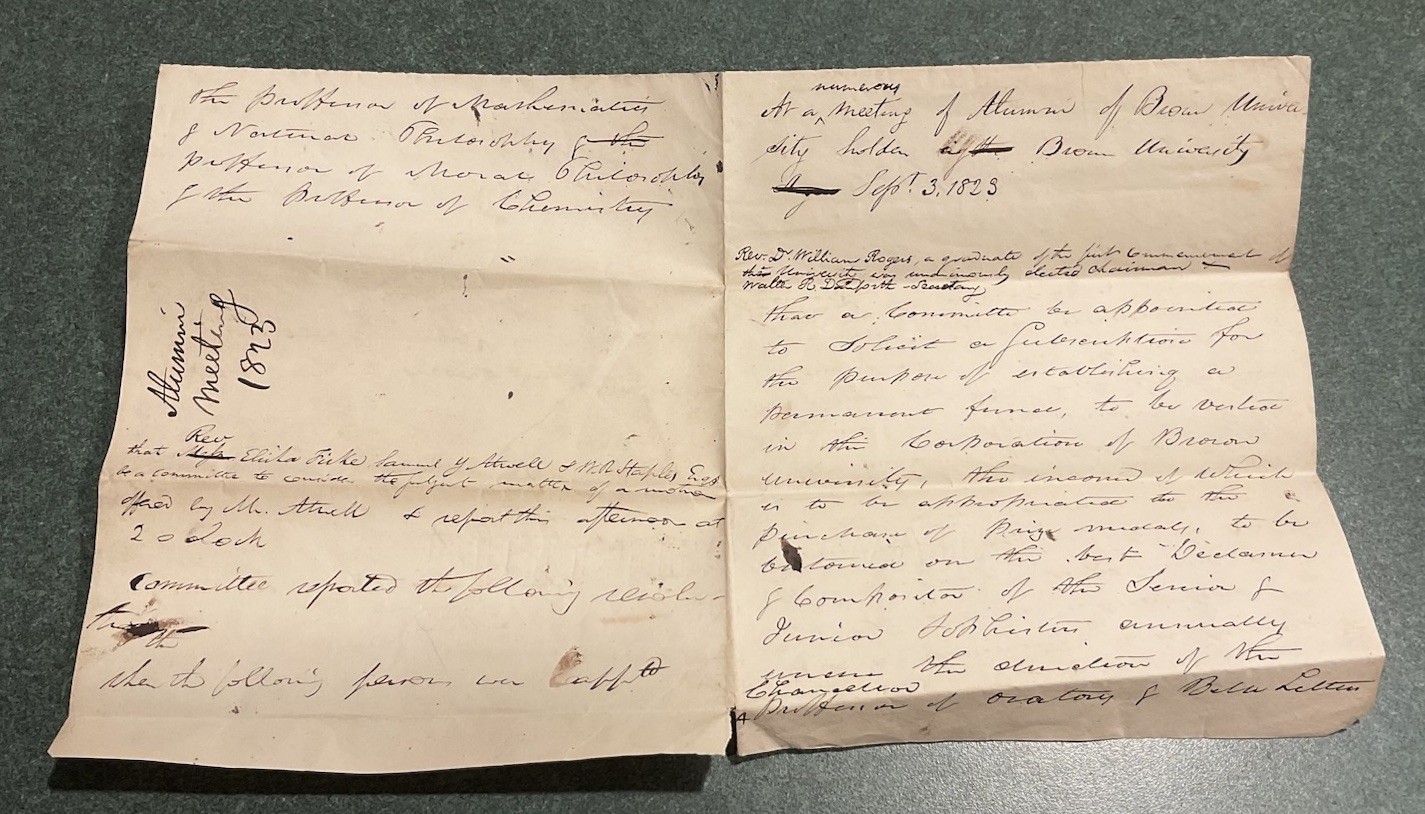 numerous
At a meeting of Alumni of Brown Univer-
sity holden at the Brown University
Sept. 3. 1823
Rev. Dr William Rogers, a graduate of the first Commencement of
this University was unanimously elected Chairman
Walter R Danforth Secretary
that a Committee be appointed
to solicit a Subscription for
the purpose of establishing a
permanent fund, to be vested
in the Corporation of Brown
University, the income of which
is to be appropriated to the
purchase of prize medals, to be
bestowed on the best Declaimer
& Compositor of the Senior &
Junior Sophisters annually
under the direction of the
Chancellor
Professor of oratory & Belle Letters
the professor of Mathematics
& Natural Philosophy & the
professor of Moral Philosophy
& the Professor of Chemistry
Alumni
meeting
1823
Rev
that Elisha Fiske Samuel Y Atwell & W. R. Staples Esqs
be a committee to consider the subject matter of a motion
offered by Mr. Atwell & report this afternoon at
2 o clock
Committee reported the following resolu-
tion
the
when the following persons were appt'd